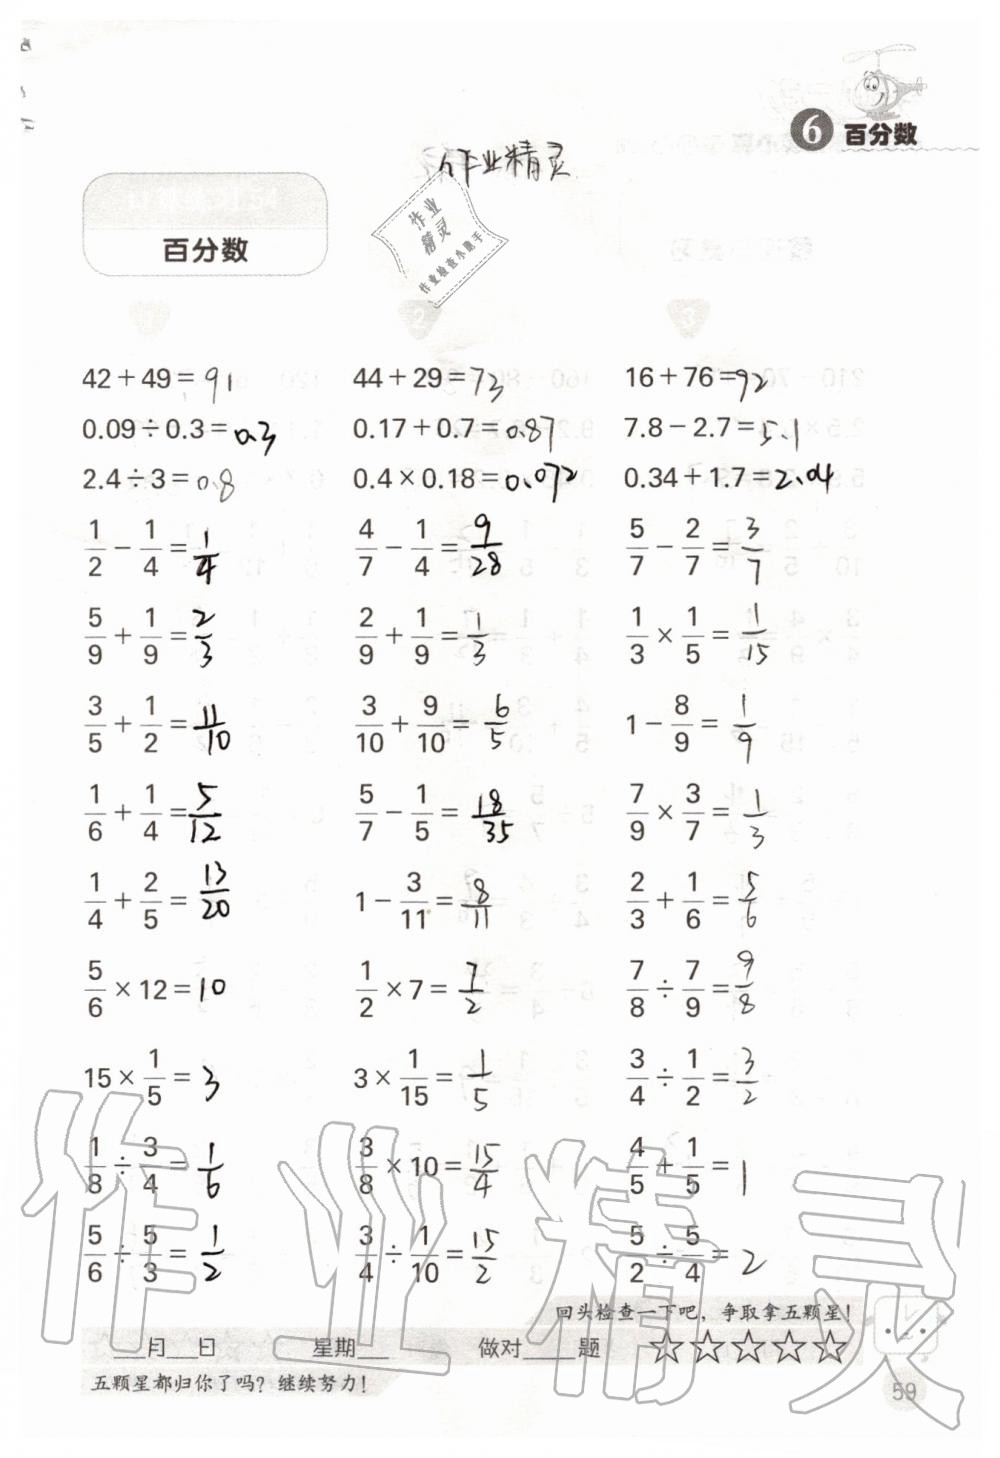 6 百分数
作业精灵
作业
精灵
作业检查小助手
百分数
1 2 3
42+49=91 44+29=73 16+76=92
0.09÷0.3=0.3 0.17+0.7=0.87 7.8−2.7=5.1
2.4÷3=0.8 0.4×0.18=0.072 0.34+1.7=2.04
1/2−1/4=1/4 4/7−1/4=9/28 5/7−2/7=3/7
5/9+1/9=2/3 2/9+1/9=1/3 1/3×1/5=1/15
3/5+1/2=11/10 3/10+9/10=6/5 1−8/9=1/9
1/6+1/4=5/12 5/7−1/5=18/35 7/9×3/7=1/3
1/4+2/5=13/20 1−3/11=8/11 2/3+1/6=5/6
5/6×12=10 1/2×7=7/2 7/8÷7/9=9/8
15×1/5=3 3×1/15=1/5 3/4÷1/2=3/2
1/8÷3/4=1/6 3/8×10=15/4 4/5+1/5=1
5/6÷5/3=1/2 3/4÷1/10=15/2 5/2÷5/4=2
作业精灵
回头检查一下吧，争取拿五颗星！
___月___日 星期___ 做对____题 ☆☆☆☆☆
五颗星都归你了吗？继续努力！
59